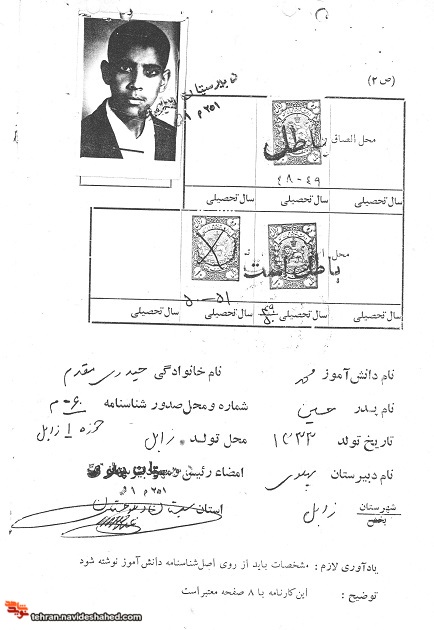 (ص ۲)
دبیرستان پهلوی
۲۵۱ م ۱
محل الصاق
باطل
۴۸-۴۹
سال تحصیلی سال تحصیلی سال تحصیلی
محل
باطل است
۵۰-۵۱
۴۹
۵۰
سال تحصیلی سال تحصیلی سال تحصیلی سال تحصیلی
نام دانش آموز محمد نام خانوادگی حیدری مقدم
نام پدر حسین شماره و محل صدور شناسنامه ۶۰-م
تاریخ تولد ۱۳۳۳ محل تولد زابل حوزه ۱ زابل
نام دبیرستان پهلوی امضاء رئیس و مهر دبیرستان
دبیرستان پهلوی
۲۵۱ م ۱
شهرستان
بخش زابل استان سیستان و بلوچستان
یادآوری لازم : مشخصات باید از روی اصل شناسنامه دانش آموز نوشته شود
توضیح : این کارنامه با ۸ صفحه معتبر است
tehran.navideshahed.com